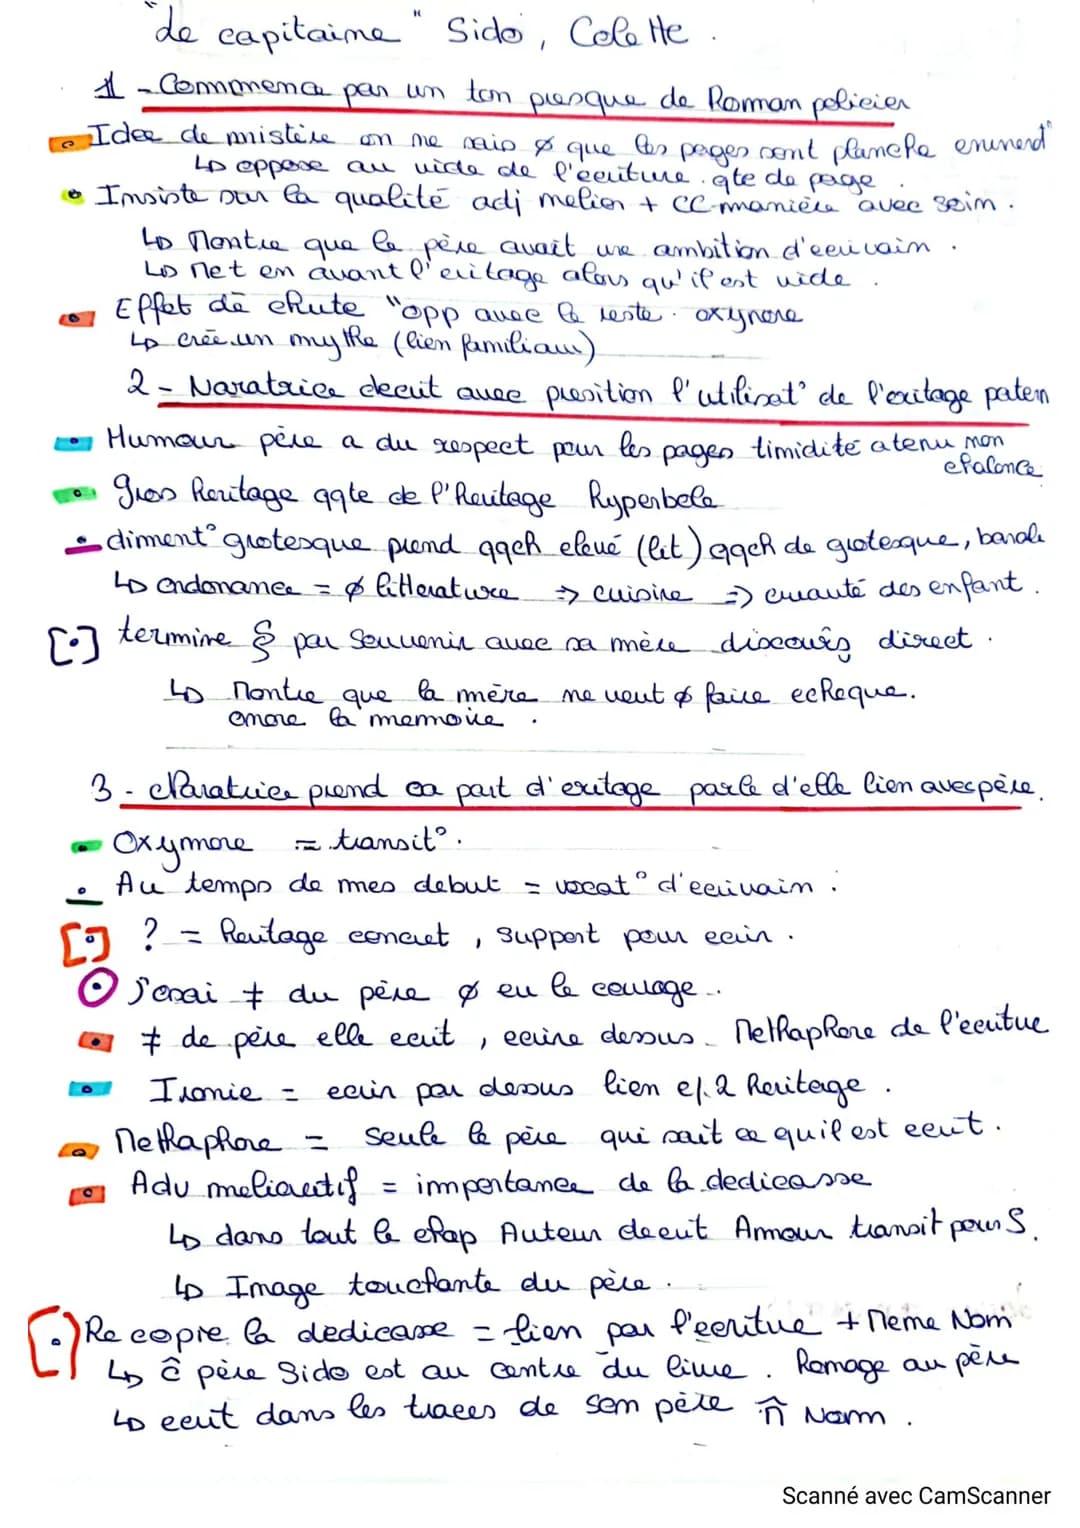 "Le capitaine" Sido, Colette.
1 - Commence par un ton presque de Roman policier
Idee de mistère on ne sais ø que les pages sont planche
↳ oppose au vide de l'ecriture. qte de page.
Insiste sur la qualité adj melior + CC manière avec soin.
↳ Montre que le père avait une ambition d'ecrivain.
↳ Met en avant l'eritage alors qu'il est vide.
Effet de chute "opp avec le reste. oxymore
↳ crée un mythe (lien familiaux)
2 - Naratrice decrit avec presition l'utilisat° de l'eritage patern
Humour père a du respect pour les pages timidité atenu non
chalance
gros heritage qqte de l'Heritage Hyperbole
diment° grotesque prend qqch elevé (lit) qqch de grotesque, banale
↳ ordonance = ø litterature => cuisine => cruauté des enfant.
[•] termine § par Souvenir avec sa mère discours direct.
↳ Montre que la mère ne veut ø faire echeque.
la memoire.
3 - Naratrice prend sa part d'eritage parle d'elle lien avec père.
Oxymore = transit°.
Au temps de mes debut = vocat° d'ecrivain.
[•] ? = Heritage concret, support pour ecrir.
j'osai ≠ du père ø eu le courage..
≠ de père elle ecrit, ecrire dessus. Methaphore de l'ecritue
Ironie = ecrir par dessus lien e/. 2 Heritage.
Methaphore = seule le père qui sait ce qu'il est ecrit.
Adv melioratif = importance de la dedicasse
↳ dans tout le chap Auteur decrit Amour transit pour S.
↳ Image touchante du père.
[•] Recopie la dedicasse = lien par l'ecritue + Meme Nom
↳ ĉ père Sido est au centre du livre. Homage au père
↳ ecrit dans les traces de son père m̂ Nom.
Scanné avec CamScanner